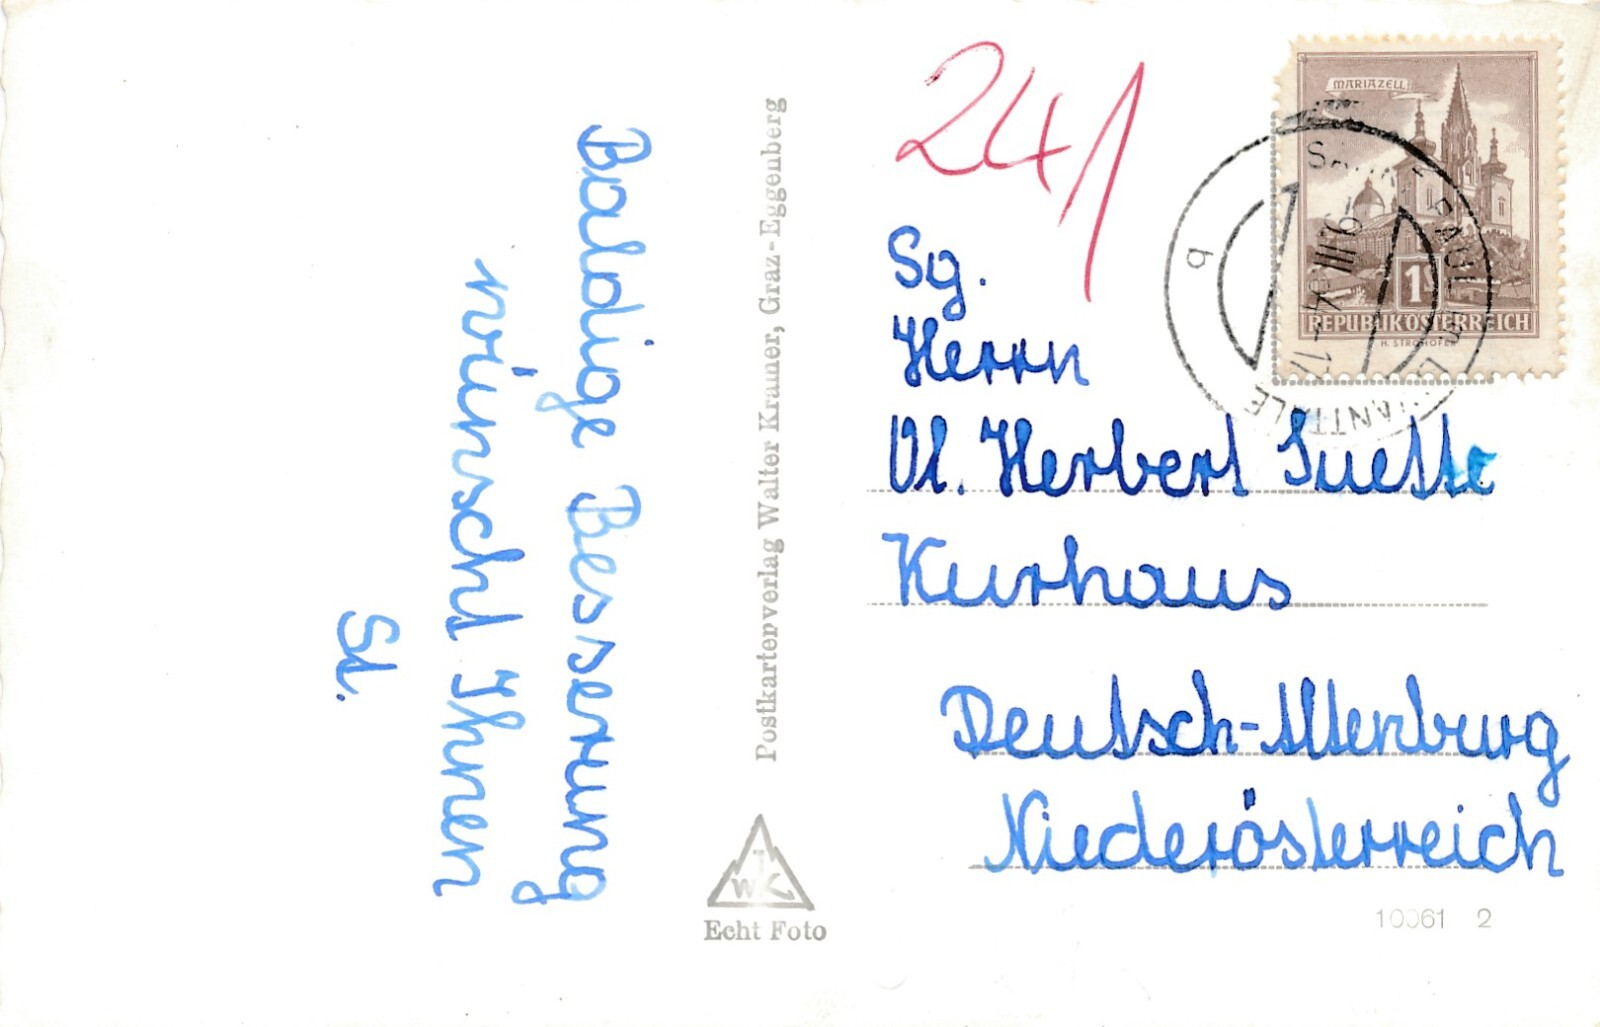 Baldige Besserung
wünscht Ihnen
St.
Postkartenverlag Walter Kramer, Graz-Eggenberg
WK
Echt Foto
241
MARIAZELL
1S
REPUBLIK ÖSTERREICH
H. STROHOFER
b
Sg.
Herrn
Vl. Herbert Suette
Kurhaus
Deutsch-Altenburg
Niederösterreich
10061 2